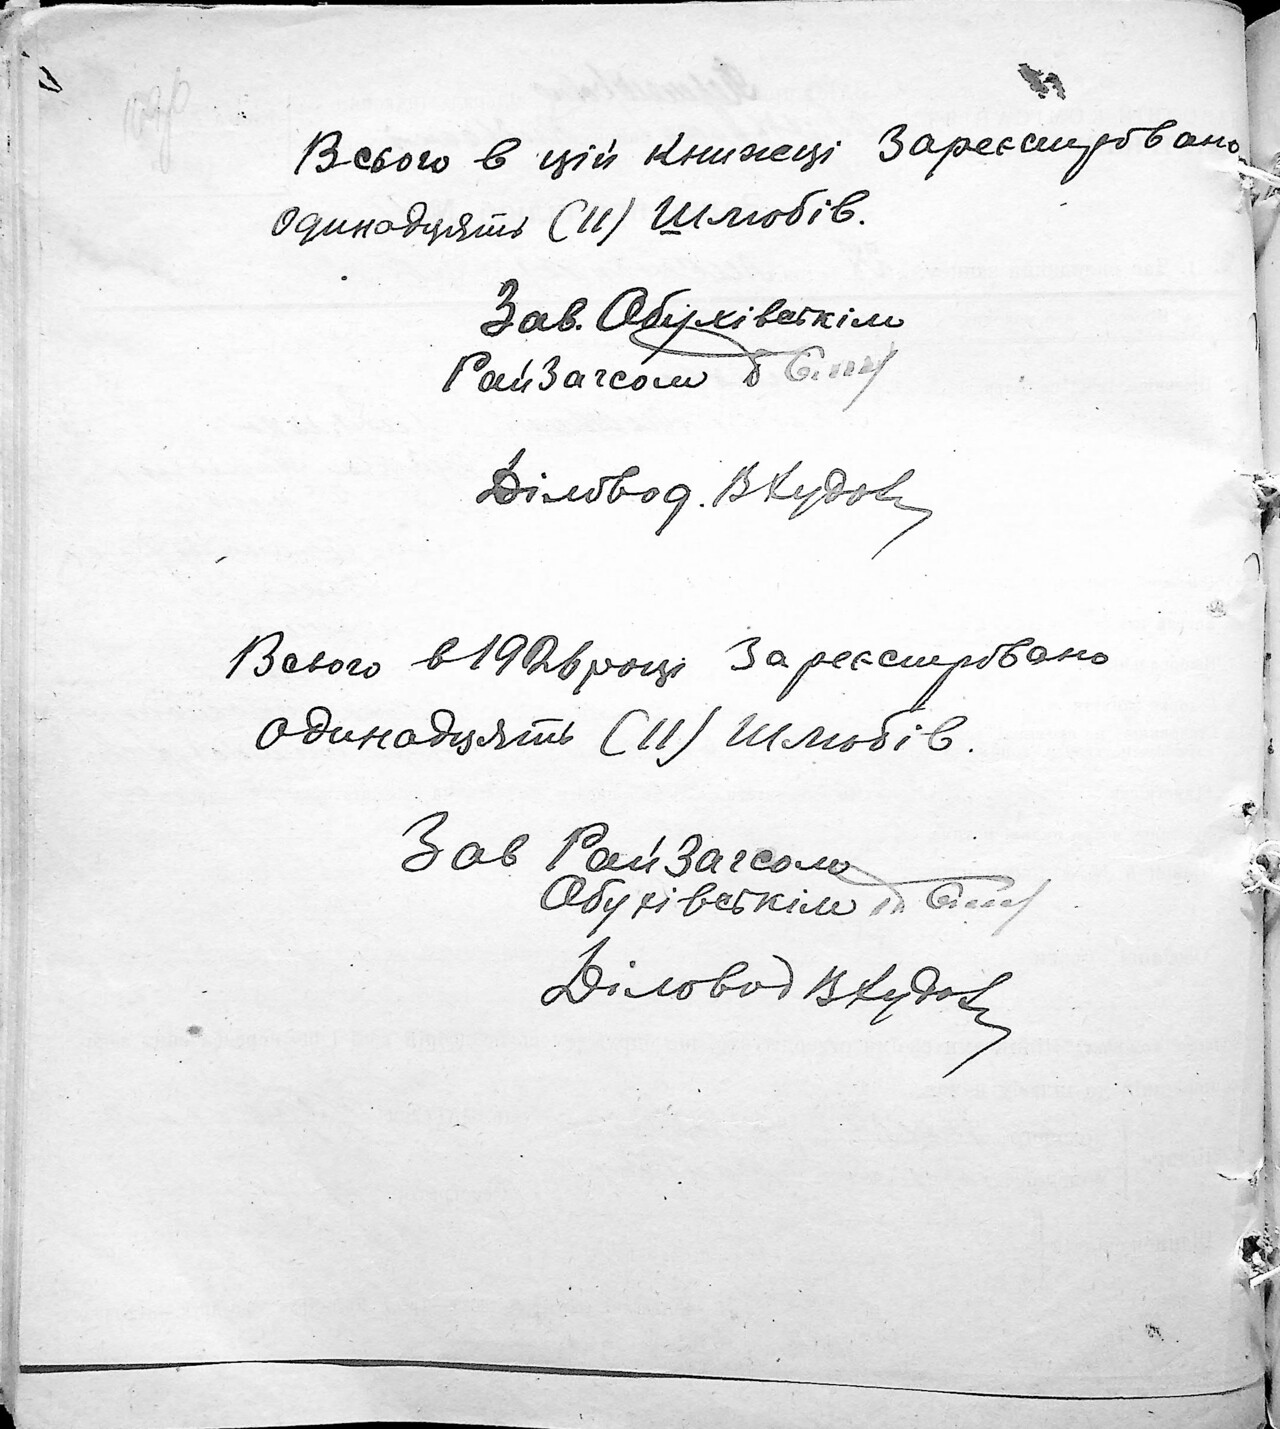 Всього в цій книжці Зареєстровано
одинадцять (11) Шлюбів.
Зав. Обухівським
РайЗагсом
Діловод.
Всього в 1926 році Зареєстровано
одинадцять (11) Шлюбів.
Зав РайЗагсом
Обухівським
Діловод